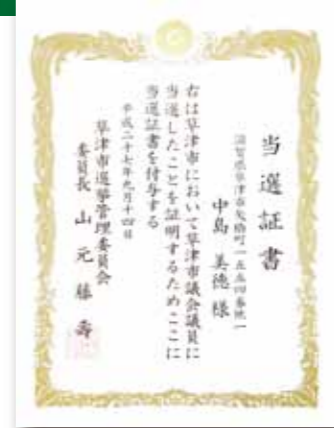 当選証書
滋賀県草津市矢橋町一五五四番地一
中島 美徳 様
右は草津市において草津市議会議員に
当選したことを証明するためここに
当選証書を付与する
平成二十七年九月十四日
草津市選挙管理委員会
委員長 山元 藤壽